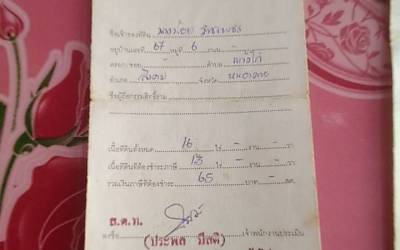 ชื่อเจ้าของที่ดิน
อยู่บ้านเลขที่ 67 หมู่ที่ 6 ถนน -
ตรอก/ซอย - ตำบล แก้งไก่
อำเภอ สังคม จังหวัด หนองคาย
ชื่อผู้ถือกรรมสิทธิ์ร่วม
เนื้อที่ดินทั้งหมด 16 ไร่ - งาน - วา
เนื้อที่ดินที่ต้องชำระภาษี 13 ไร่ - งาน - วา
รวมเงินภาษีที่ต้องชำระ 65 บาท - สต.
ส.ต.ท.
ลงชื่อ เจ้าพนักงานประเมิน
(ประพล มีสติ)